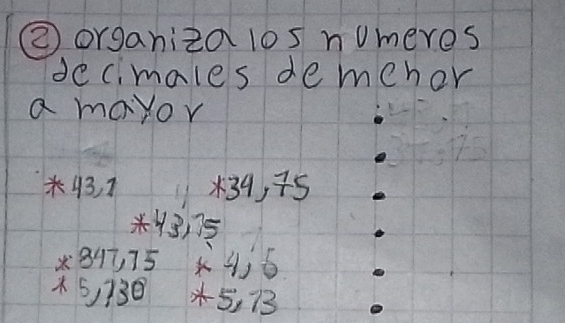 ② organiza los números
decimales de menor
a mayor
*43,1 *34,75
*43,75
*847,75 *4,6
*5,730 *5,73